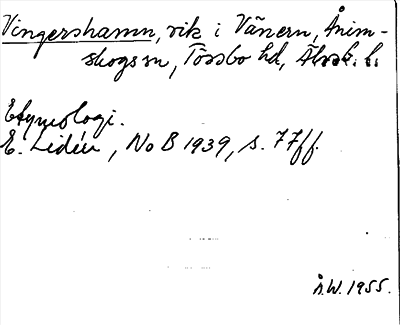 Vingershamn, vik i Vänern, Ånim-
skogs sn, Tössbo hd, Älvsb. l.
Etymologi.
E. Lidén, NoB 1939, s. 77ff.
Å.W. 1955.